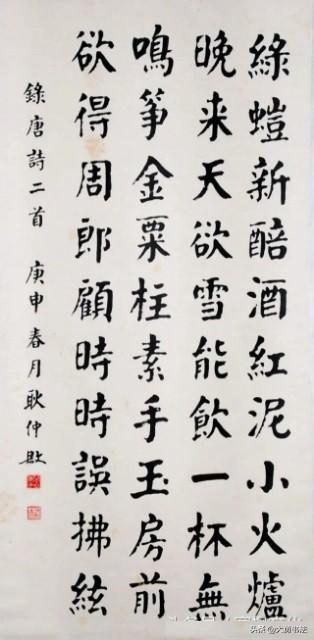 綠螘新醅酒紅泥小火爐
晚来天欲雪能飲一杯無
鳴筝金粟柱素手玉房前
欲得周郎顧時時誤拂絃
錄唐詩二首 庚申春月耿仲敭
头条@大勇书法